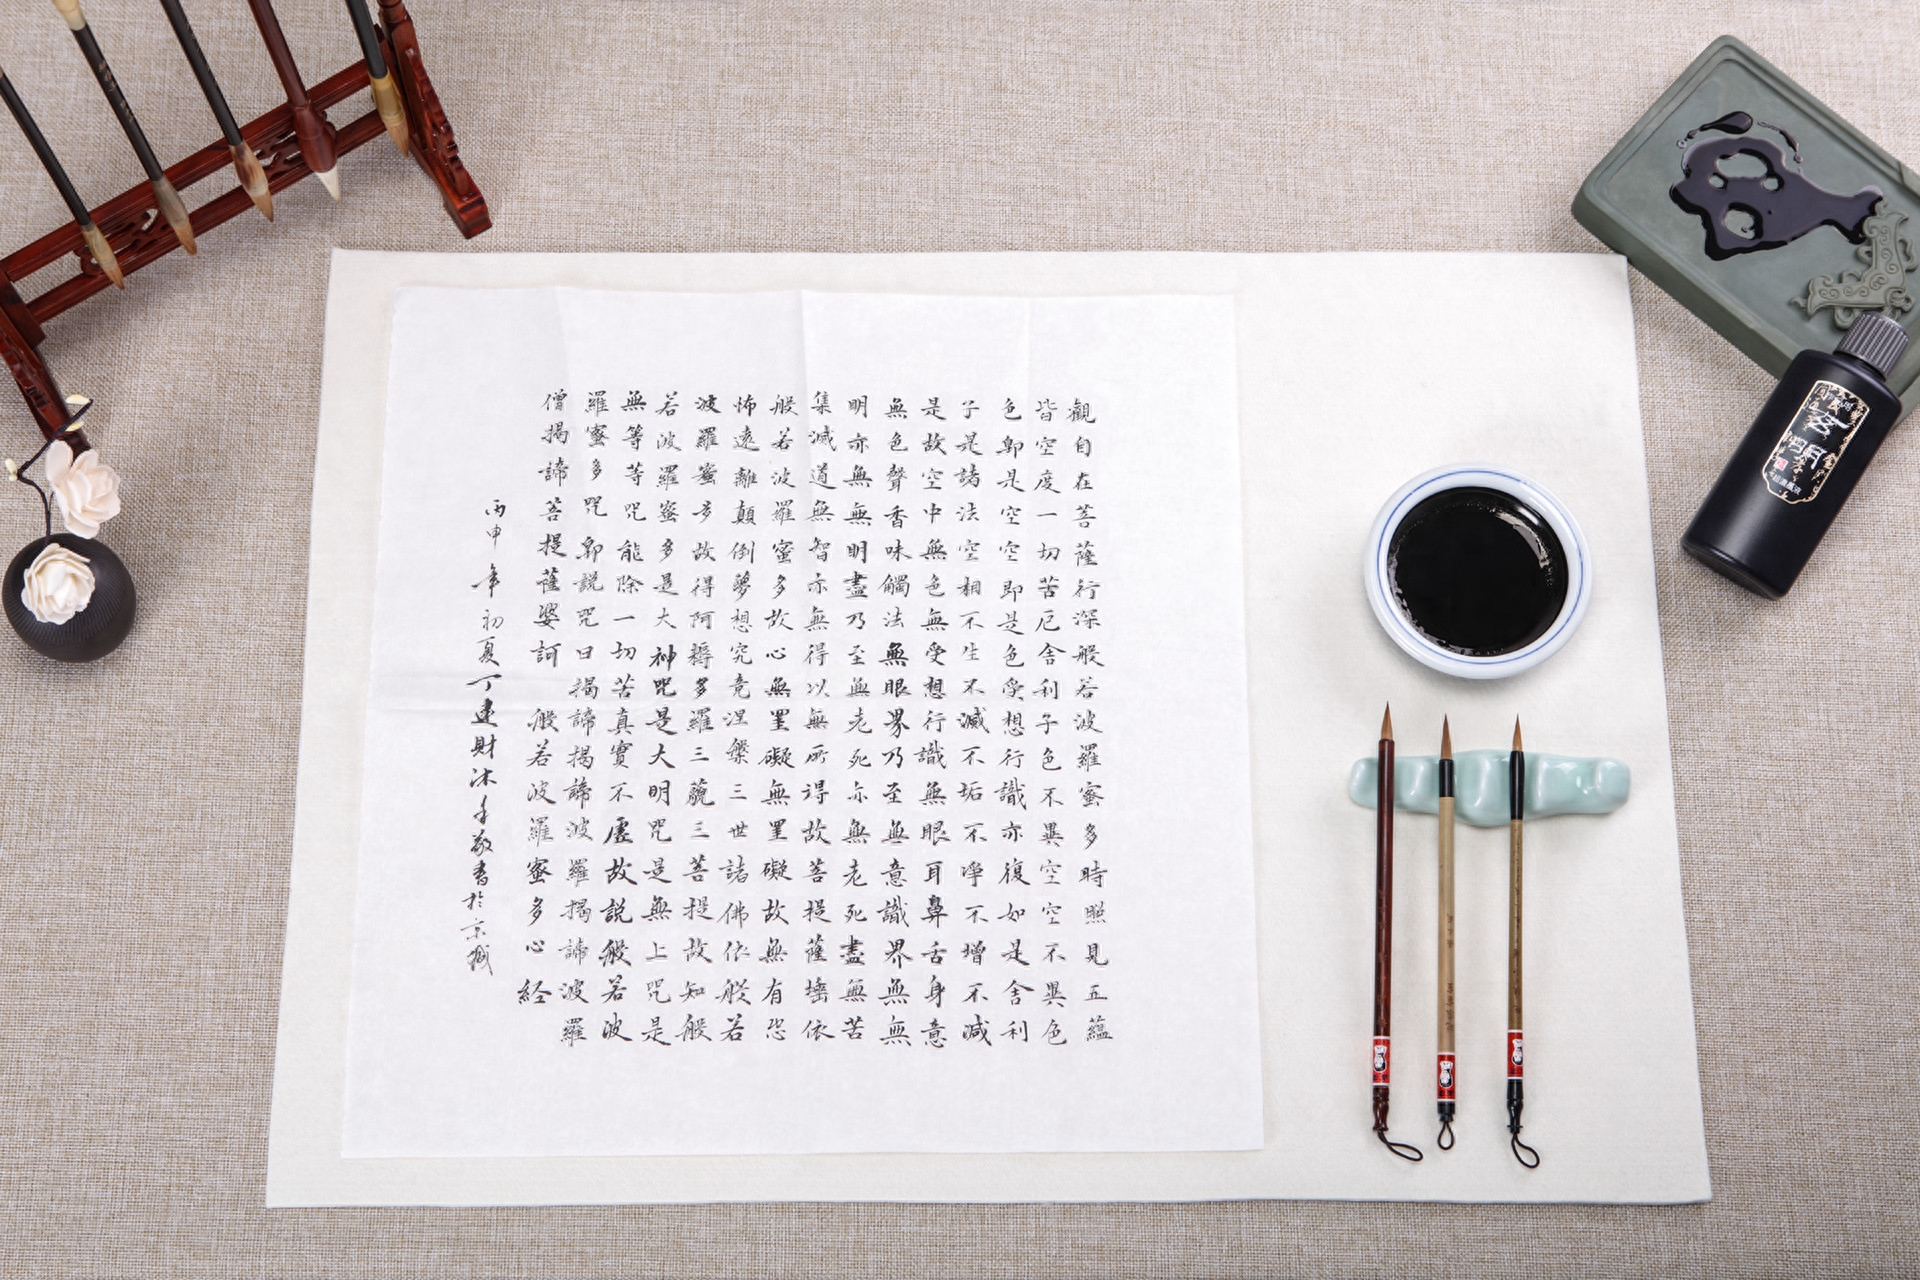 觀自在菩薩行深般若波羅蜜多時照見五蘊
皆空度一切苦厄舍利子色不異空空不異色
色即是空空即是色受想行識亦復如是舍利
子是諸法空相不生不滅不垢不淨不增不減
是故空中無色無受想行識無眼耳鼻舌身意
無色聲香味觸法無眼界乃至無意識界無無
明亦無無明盡乃至無老死亦無老死盡無苦
集滅道無智亦無得以無所得故菩提薩埵依
般若波羅蜜多故心無罣礙無罣礙故無有恐
怖遠離顛倒夢想究竟涅槃三世諸佛依般若
波羅蜜多故得阿耨多羅三藐三菩提故知般
若波羅蜜多是大神咒是大明咒是無上咒是
無等等咒能除一切苦真實不虛故說般若波
羅蜜多咒即說咒曰揭諦揭諦波羅揭諦波羅
僧揭諦菩提薩婆訶 般若波羅蜜多心経
丙申年初夏丁建財沐手敬書於京城